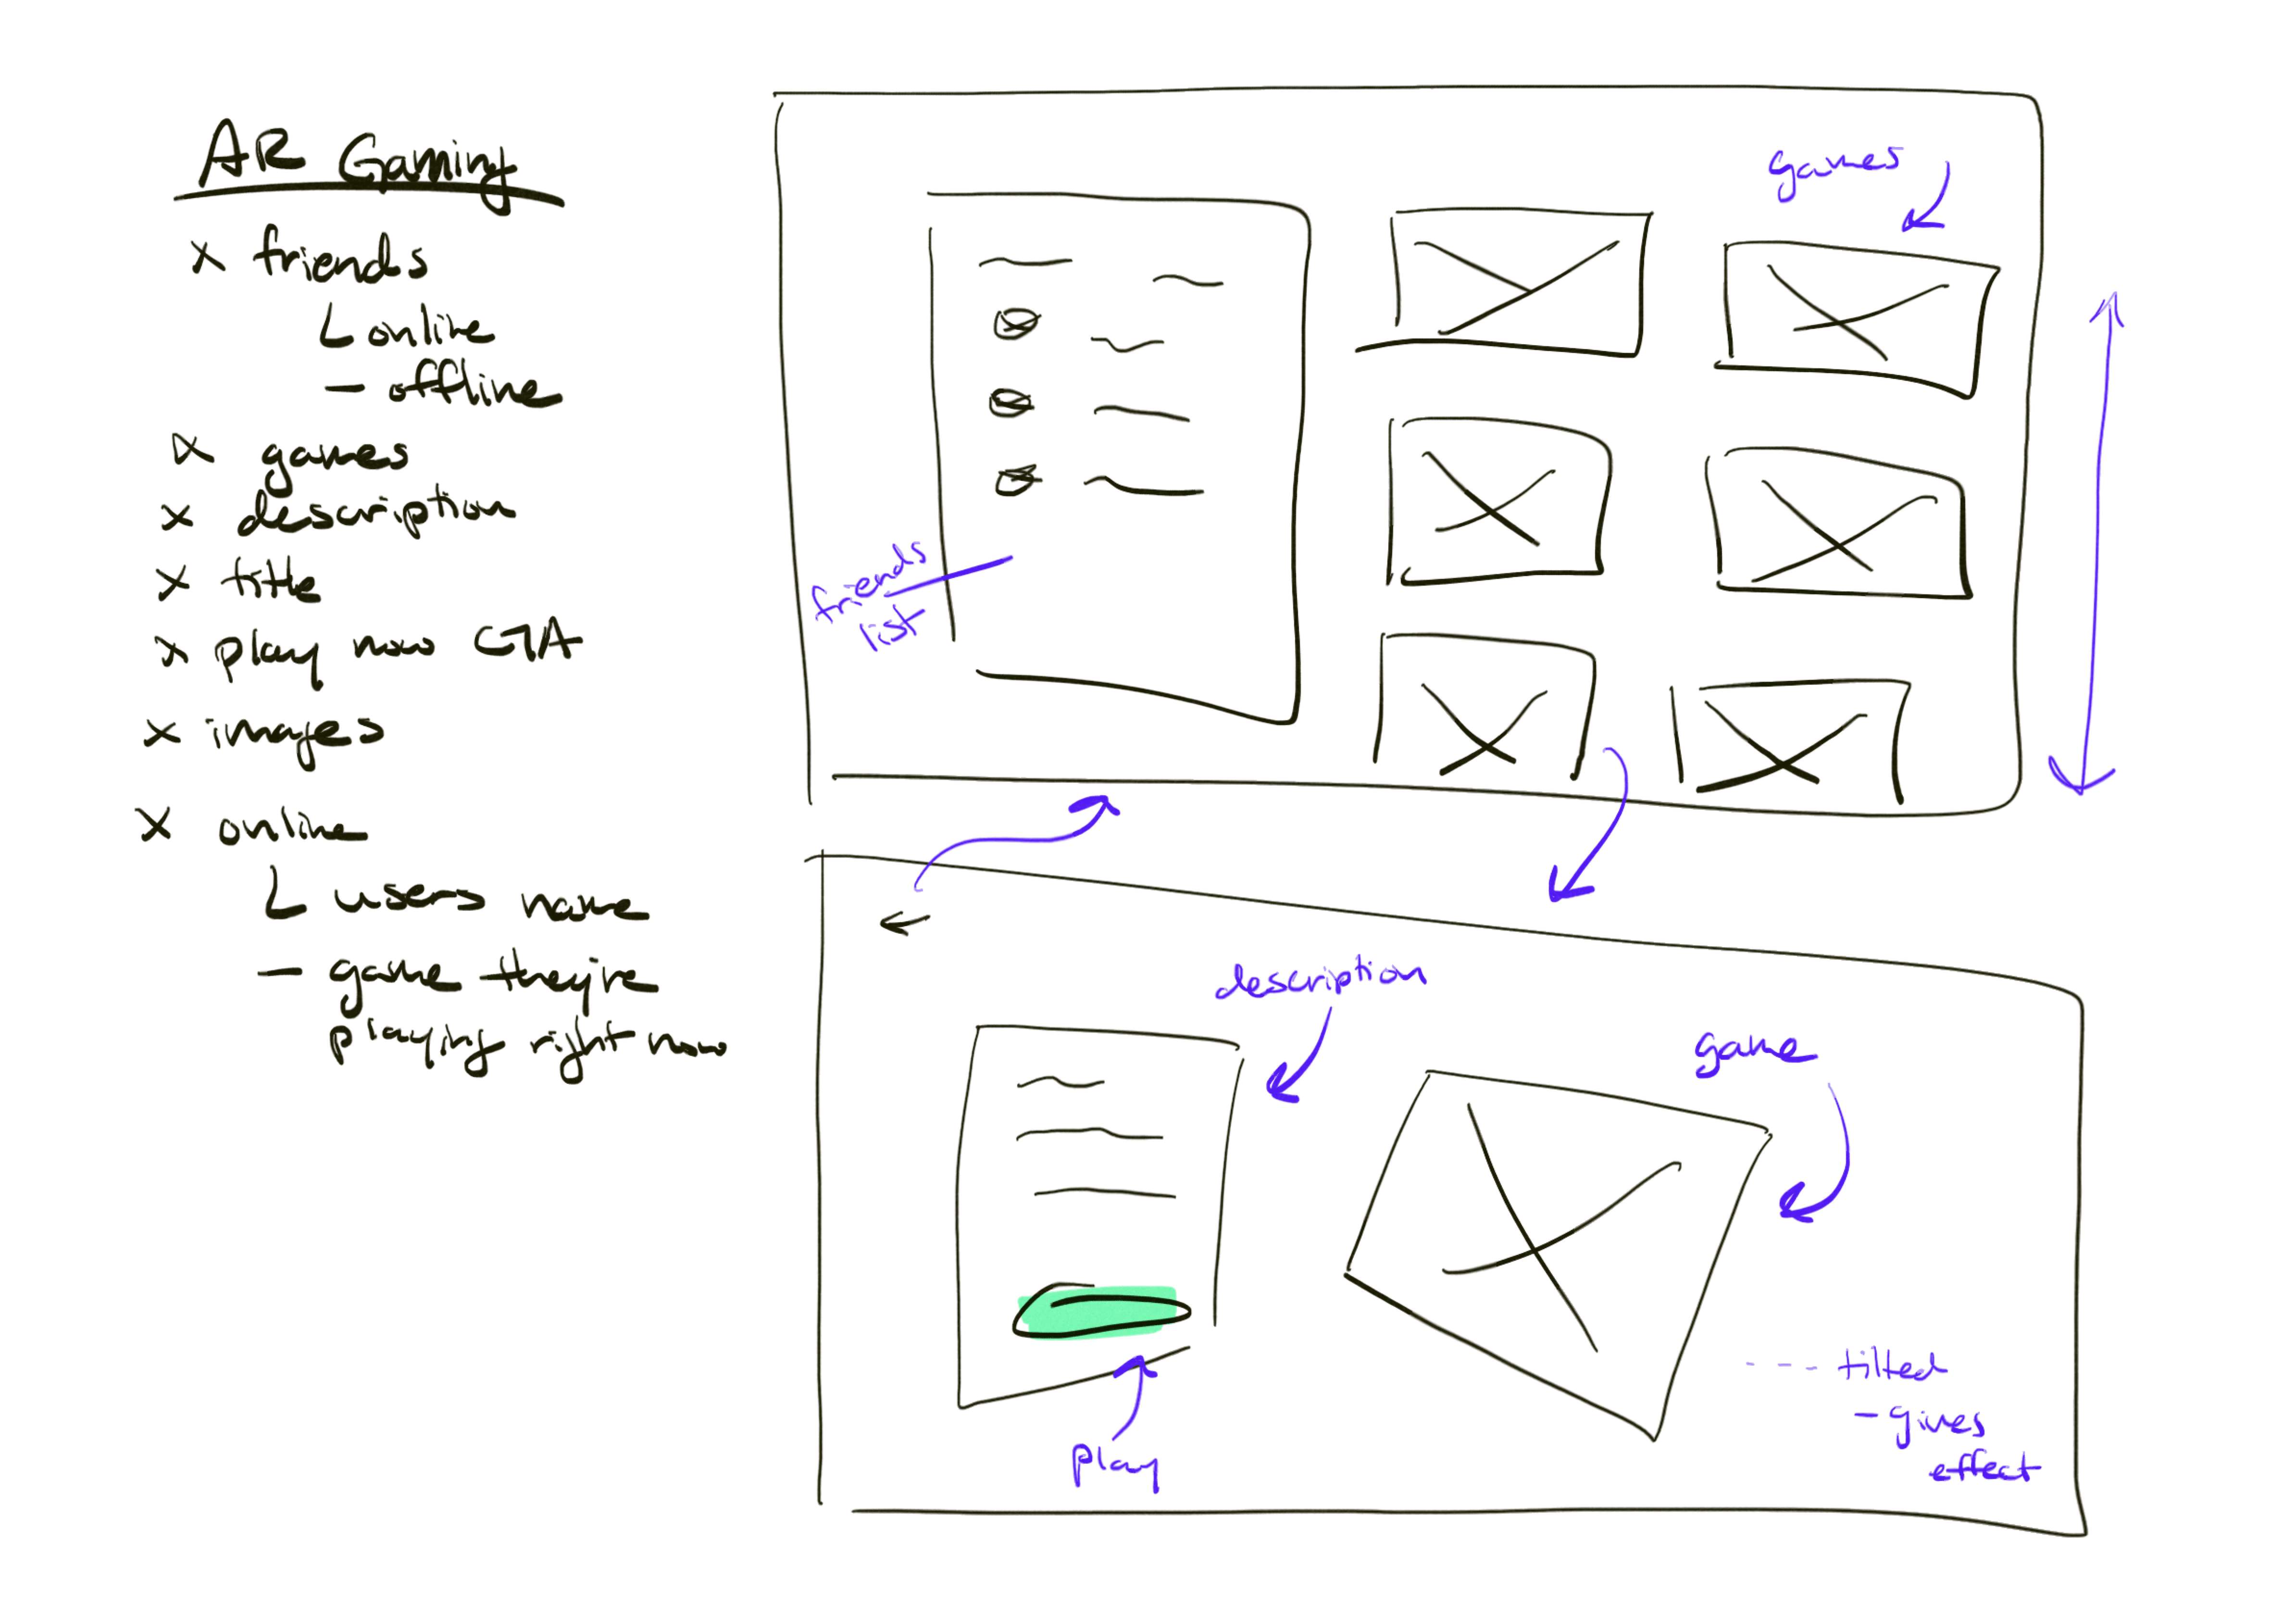 AR Gaming
x friends
online
- offline
x games
x description
x title
x play now CTA
x images
x online
users name
- game they're
playing right now
games
friends
list
description
game
play
--- tilted
- gives
effect